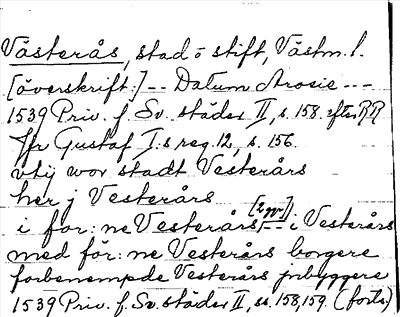 Västerås, stad o stift, Västm. l.
[överskrift:] -- Datum Arosie ---
1539 Priv. f. Sv. städer II, s. 158. efter RR
Jfr Gustaf I:s reg. 12, s. 156.
vtij wor stadt Vesterårs
her j Vesterårs
i for:ne Vesterårs [2 ggr] -- i Vesterårs
med för:ne Vesterårs borgere
forbenempde Vesterårs jnbyggere
1539 Priv. f. Sv. städer II, ss. 158, 159. (forts.)